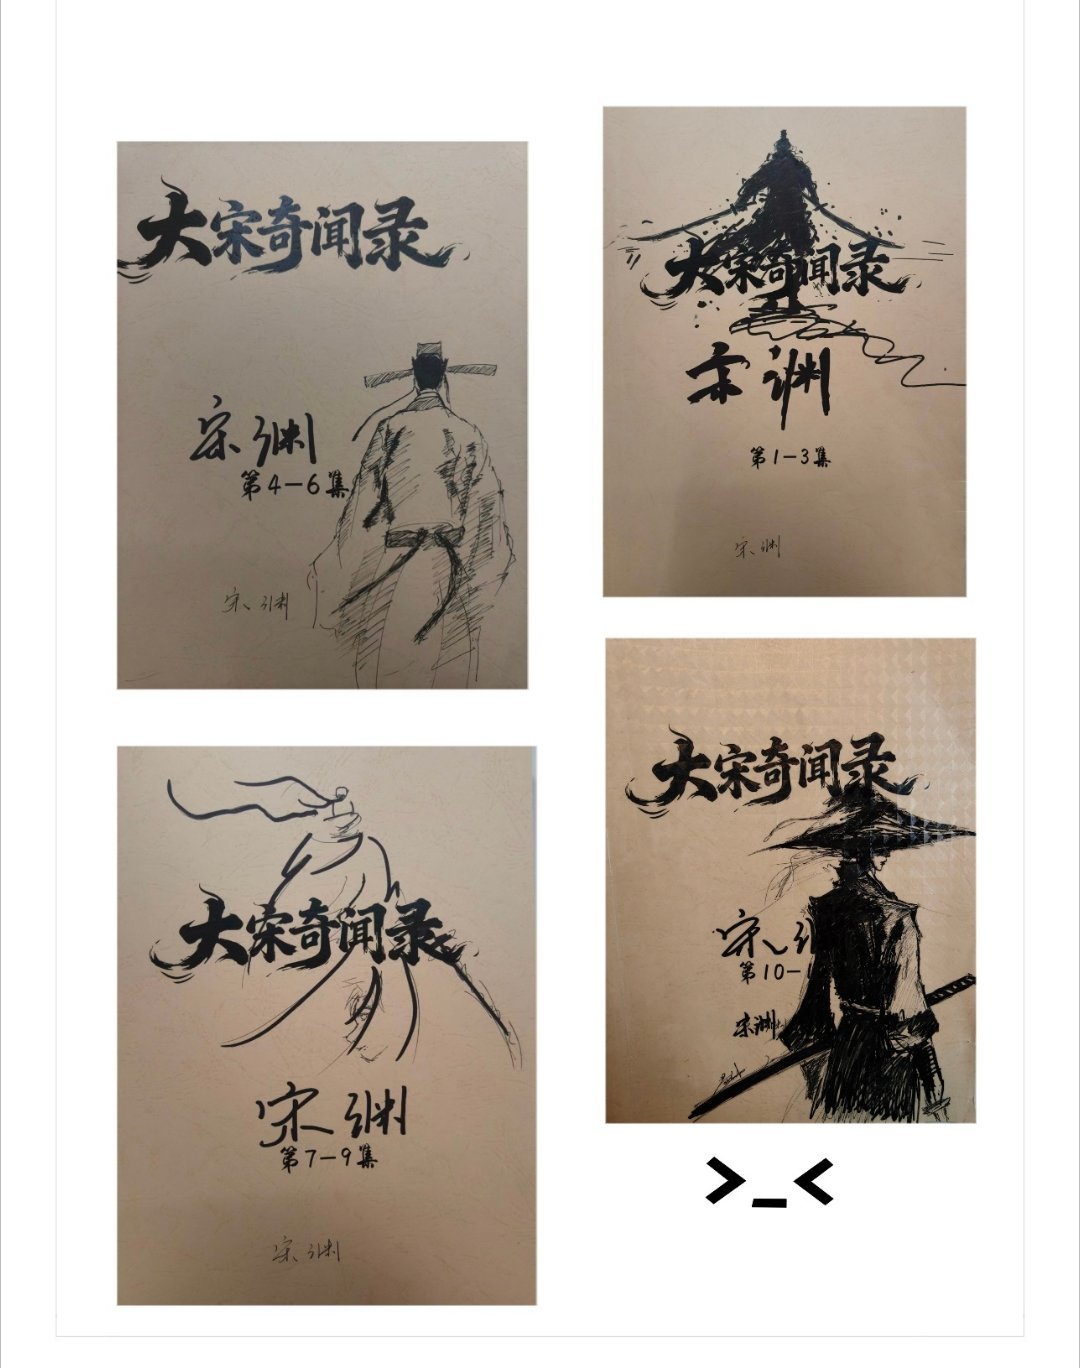 大宋奇闻录
宋渊
第4-6集
宋渊
大宋奇闻录
宋渊
第1-3集
宋渊
大宋奇闻录
宋渊
第7-9集
宋渊
大宋奇闻录
宋
第10-1
宋渊
>_<